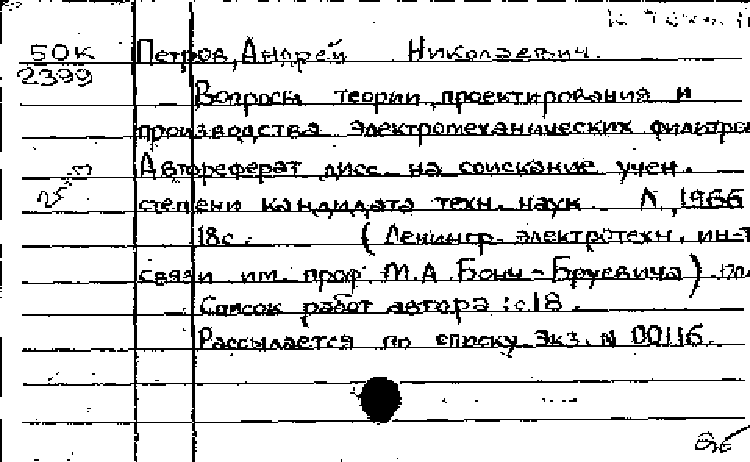 50К Петров, Андрей Николаевич.
2399
Вопросы теории, проектирования и
производства электромеханических фильтров
Автореферат дисс. на соискание учен.
степени кандидата техн. наук. Л, 1966
18с. (Ленингр. электротехн. ин-т
связи им. проф. М.А. Бонч-Бруевича)
Список работ автора: с.18.
Рассылается по списку. Экз. № 00116.